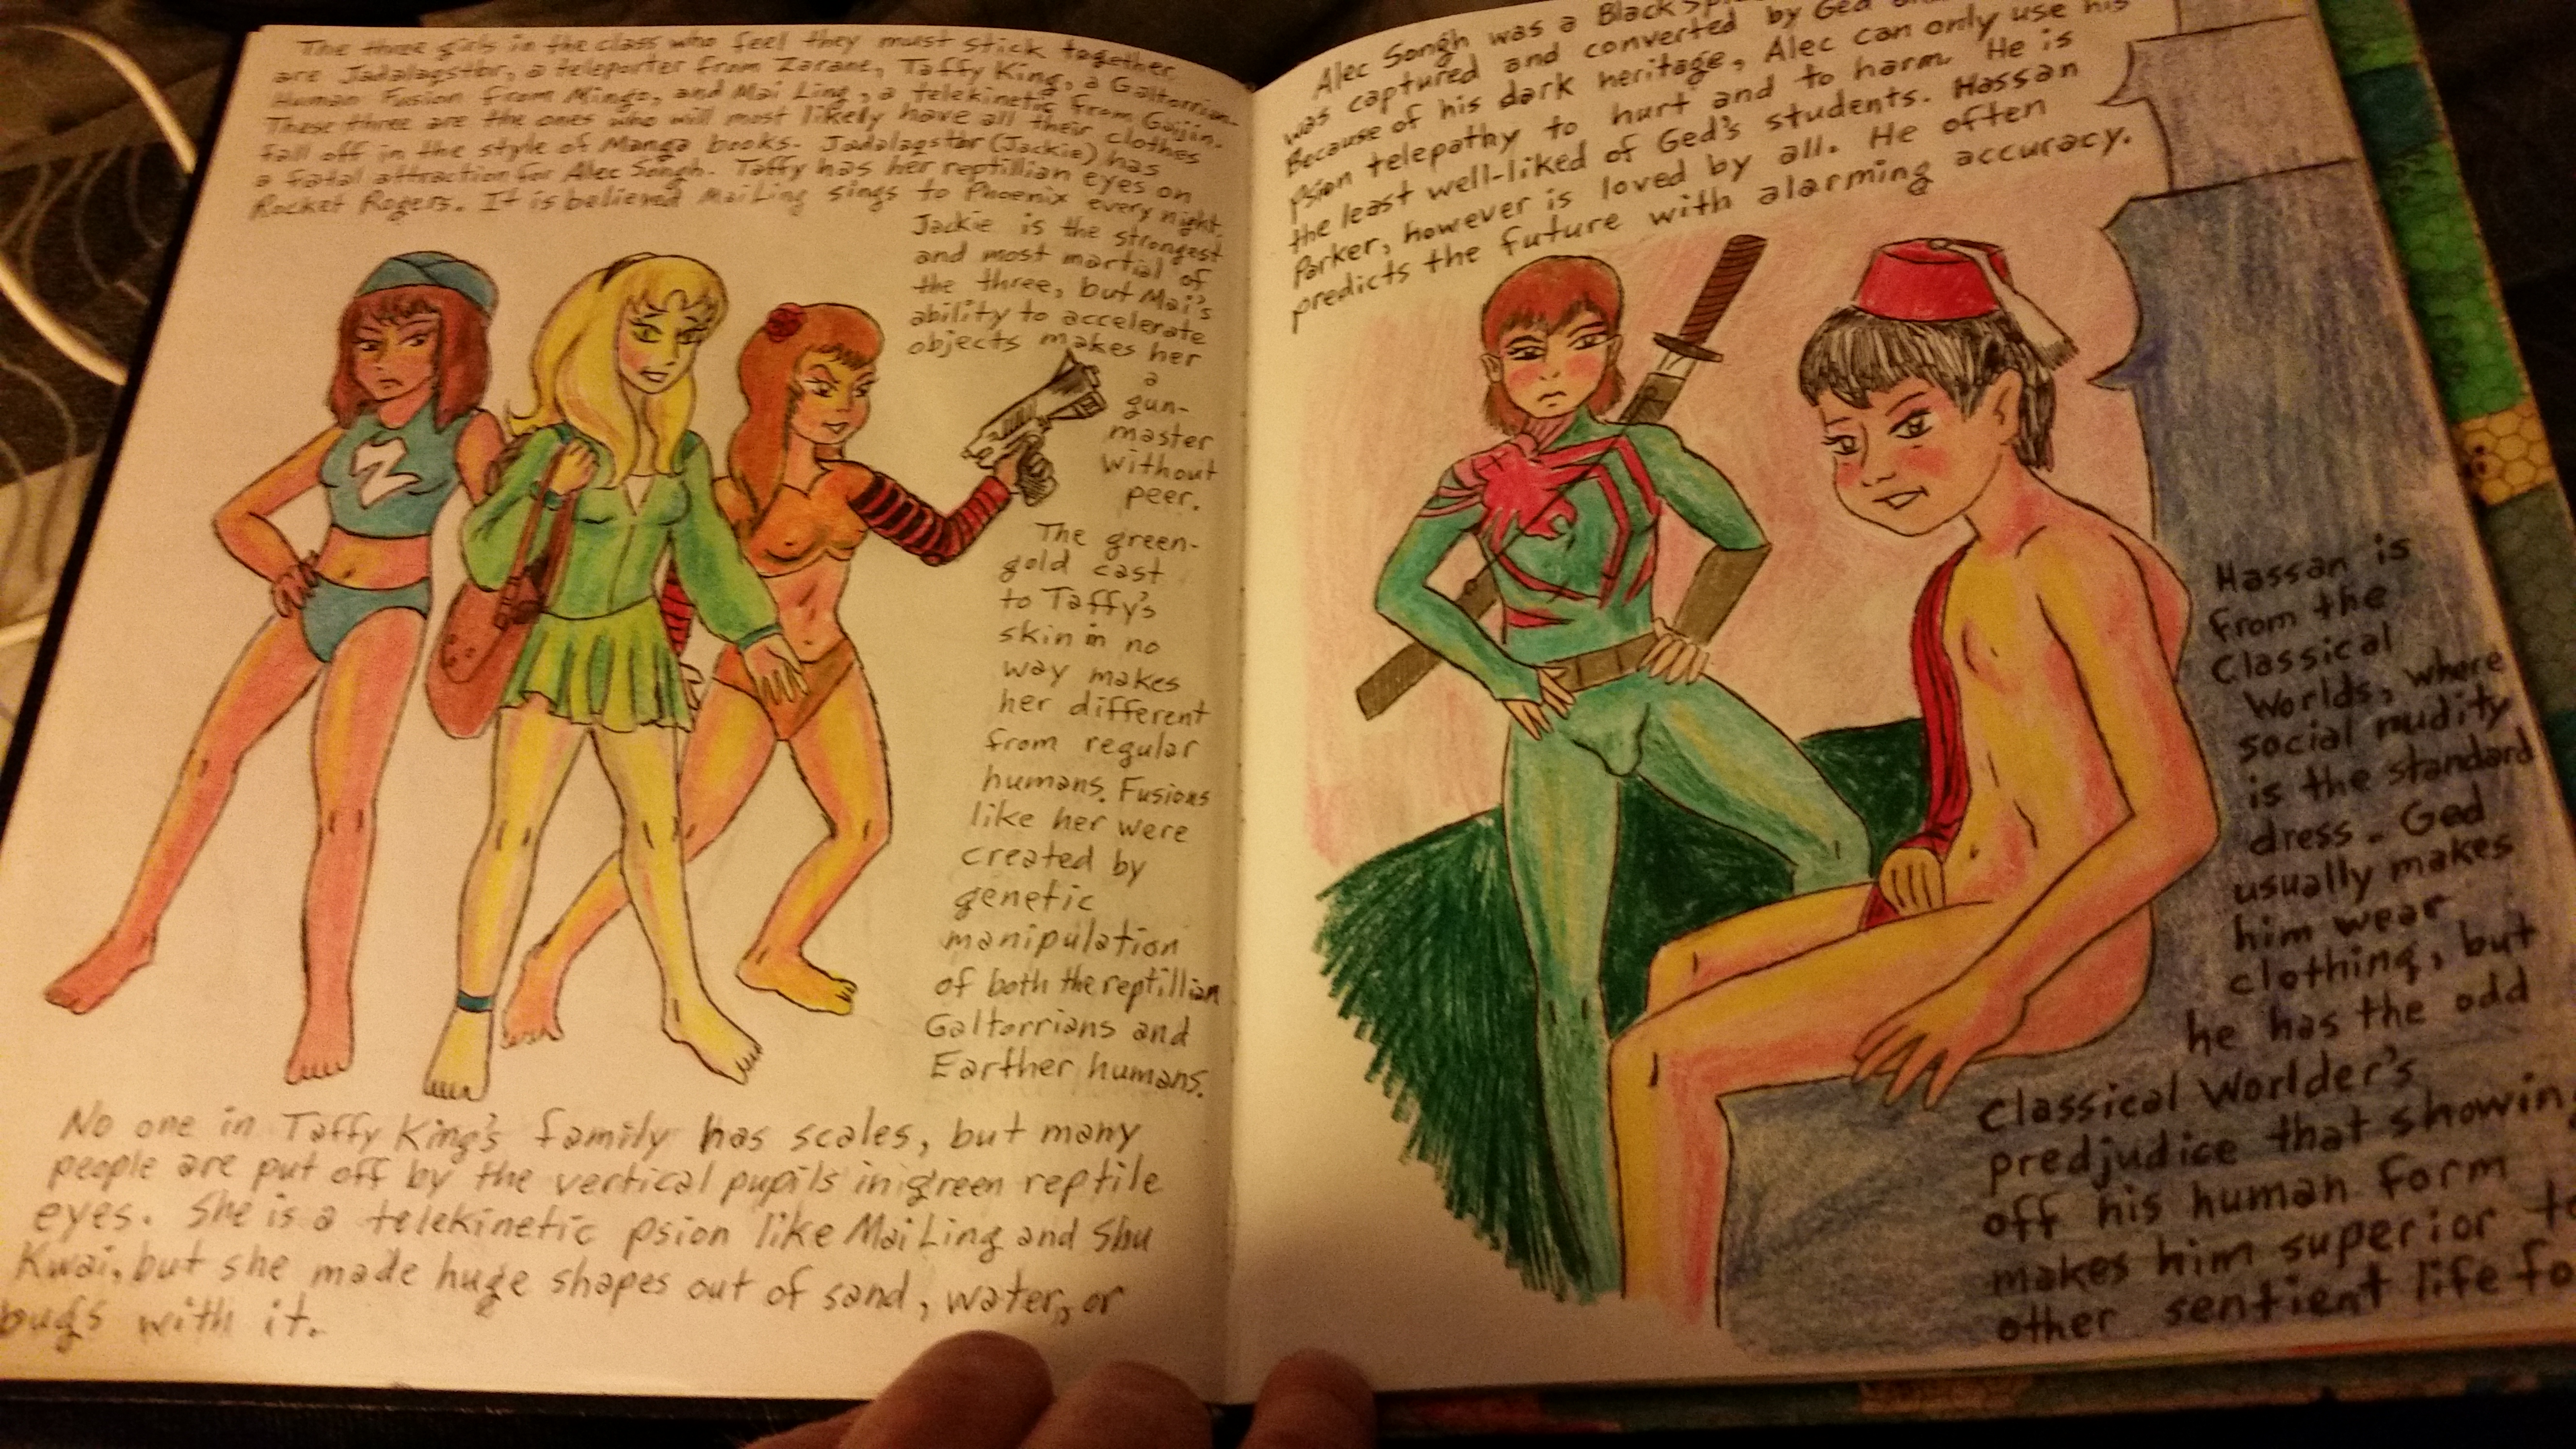 The three girls in the class who feel they must stick together
are Jadalaqstbr, a teleporter from Zarane, Taffy King, a Galtorrian-
Human Fusion from Mingo, and Mai Ling, a telekinetic from Gaijin.
These three are the ones who will most likely have all their clothes
fall off in the style of Manga books. Jadalaqstbr (Jackie) has
a fatal attraction for Alec Songh. Taffy has her reptillian eyes on
Rocket Rogers. It is believed Mai Ling sings to Phoenix every night.
Jackie is the strongest
and most martial of
the three, but Mai's
ability to accelerate
objects makes her
a
gun-
master
without
peer.
The green-
gold cast
to Taffy's
skin in no
way makes
her different
from regular
humans. Fusions
like her were
created by
genetic
manipulation
of both the reptillian
Galtorrians and
Earther humans.
Z
No one in Taffy King's family has scales, but many
people are put off by the vertical pupils in green reptile
eyes. She is a telekinetic psion like Mai Ling and Shu
Kwai, but she made huge shapes out of sand, water, or
bugs with it.
Alec Songh was a Black
was captured and converted by Ged
Because of his dark heritage, Alec can only use his
psion telepathy to hurt and to harm. He is
the least well-liked of Ged's students. Hassan
Parker, however is loved by all. He often
predicts the future with alarming accuracy.
Hassan is
from the
Classical
Worlds, where
social nudity
is the standard
dress. Ged
usually makes
him wear
clothing, but
he has the odd
Classical Worlder's
predjudice that showin
off his human form
makes him superior to
other sentient life fo